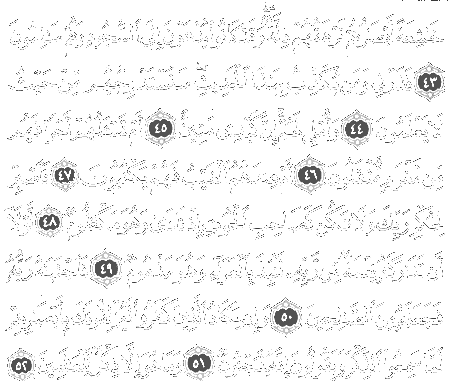 خَٰشِعَةً أَبْصَٰرُهُمْ تَرْهَقُهُمْ ذِلَّةٌ ۖ وَقَدْ كَانُوا۟ يُدْعَوْنَ إِلَى ٱلسُّجُودِ وَهُمْ سَٰلِمُونَ
﴿٤٣﴾ فَذَرْنِى وَمَن يُكَذِّبُ بِهَٰذَا ٱلْحَدِيثِ ۖ سَنَسْتَدْرِجُهُم مِّنْ حَيْثُ
لَا يَعْلَمُونَ ﴿٤٤﴾ وَأُمْلِى لَهُمْ ۚ إِنَّ كَيْدِى مَتِينٌ ﴿٤٥﴾ أَمْ تَسْـَٔلُهُمْ أَجْرًا فَهُم
مِّن مَّغْرَمٍ مُّثْقَلُونَ ﴿٤٦﴾ أَمْ عِندَهُمُ ٱلْغَيْبُ فَهُمْ يَكْتُبُونَ ﴿٤٧﴾ فَٱصْبِرْ
لِحُكْمِ رَبِّكَ وَلَا تَكُن كَصَاحِبِ ٱلْحُوتِ إِذْ نَادَىٰ وَهُوَ مَكْظُومٌ ﴿٤٨﴾ لَّوْلَآ
أَن تَدَٰرَكَهُۥ نِعْمَةٌ مِّن رَّبِّهِۦ لَنُبِذَ بِٱلْعَرَآءِ وَهُوَ مَذْمُومٌ ﴿٤٩﴾ فَٱجْتَبَٰهُ رَبُّهُۥ
فَجَعَلَهُۥ مِنَ ٱلصَّٰلِحِينَ ﴿٥٠﴾ وَإِن يَكَادُ ٱلَّذِينَ كَفَرُوا۟ لَيُزْلِقُونَكَ بِأَبْصَٰرِهِمْ
لَمَّا سَمِعُوا۟ ٱلذِّكْرَ وَيَقُولُونَ إِنَّهُۥ لَمَجْنُونٌ ﴿٥١﴾ وَمَا هُوَ إِلَّا ذِكْرٌ لِّلْعَٰلَمِينَ ﴿٥٢﴾